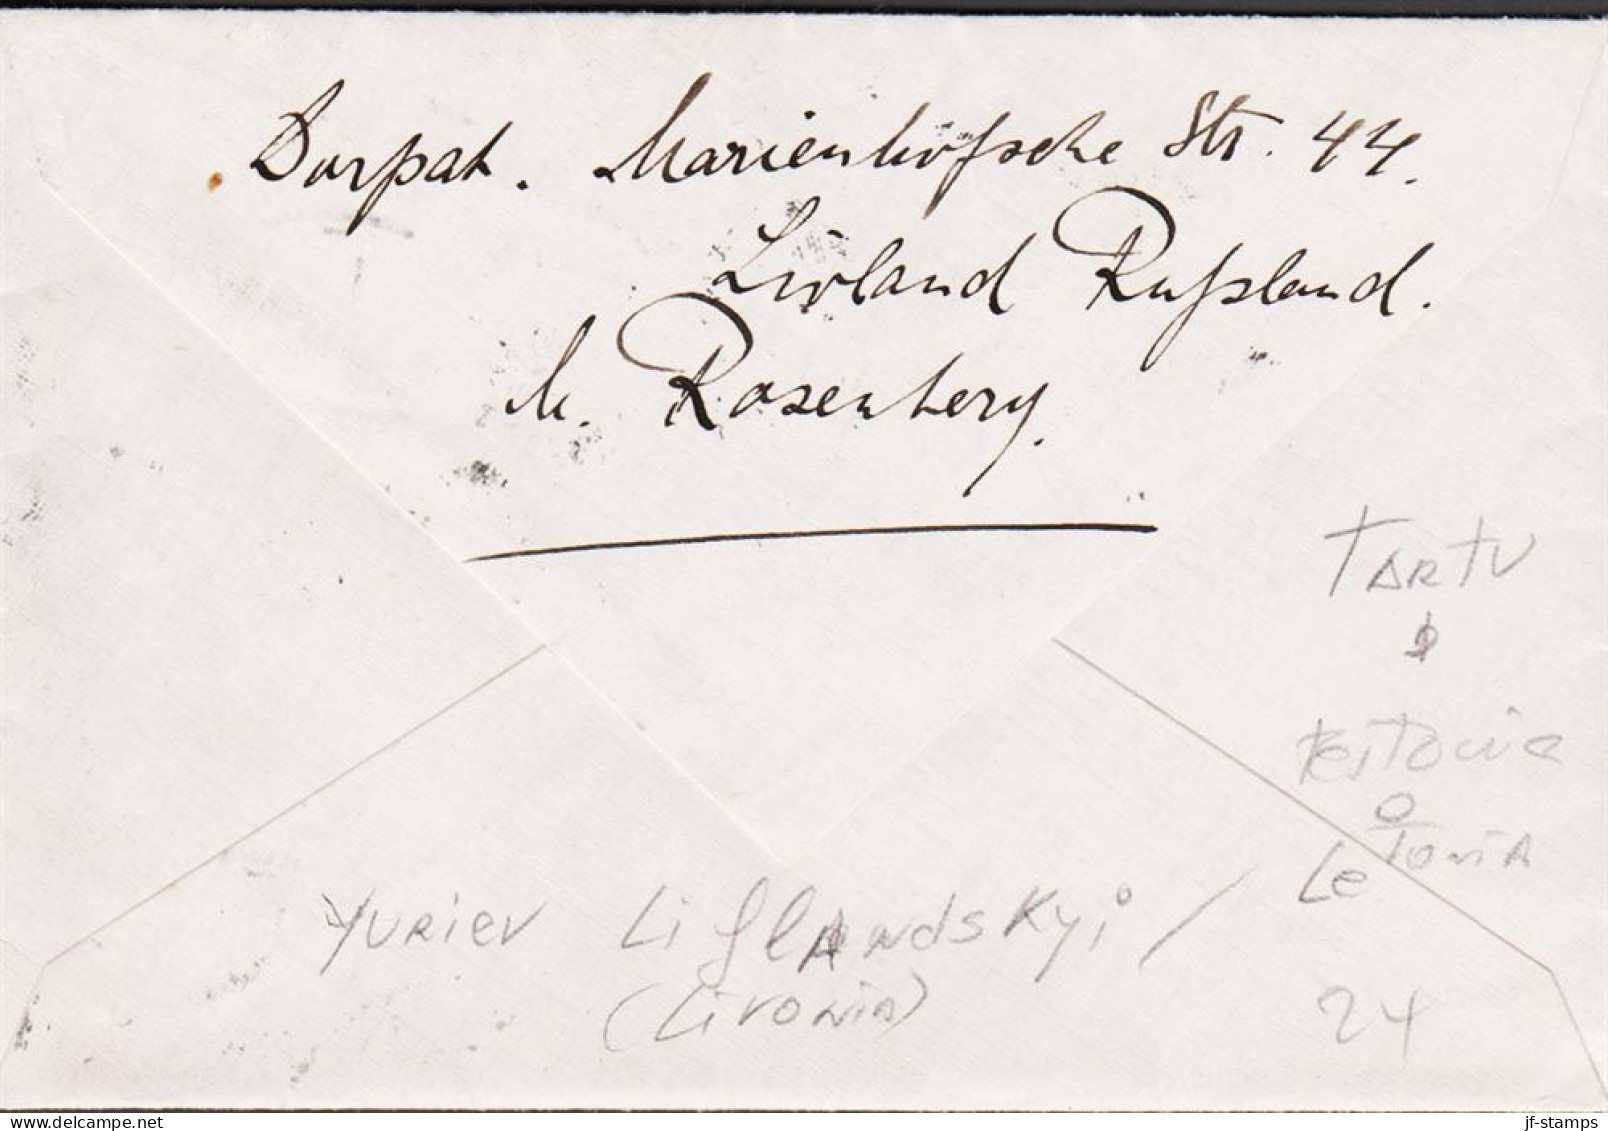 Dorpat. Marienhofsche Str. 44.
Livland Rußland.
M. Rosenberg.
TARTU
EsTonia
o
LeTonia
YURIEV LiflANdsKyi /
(Livonia)
24
delcampe.net
jf-stamps